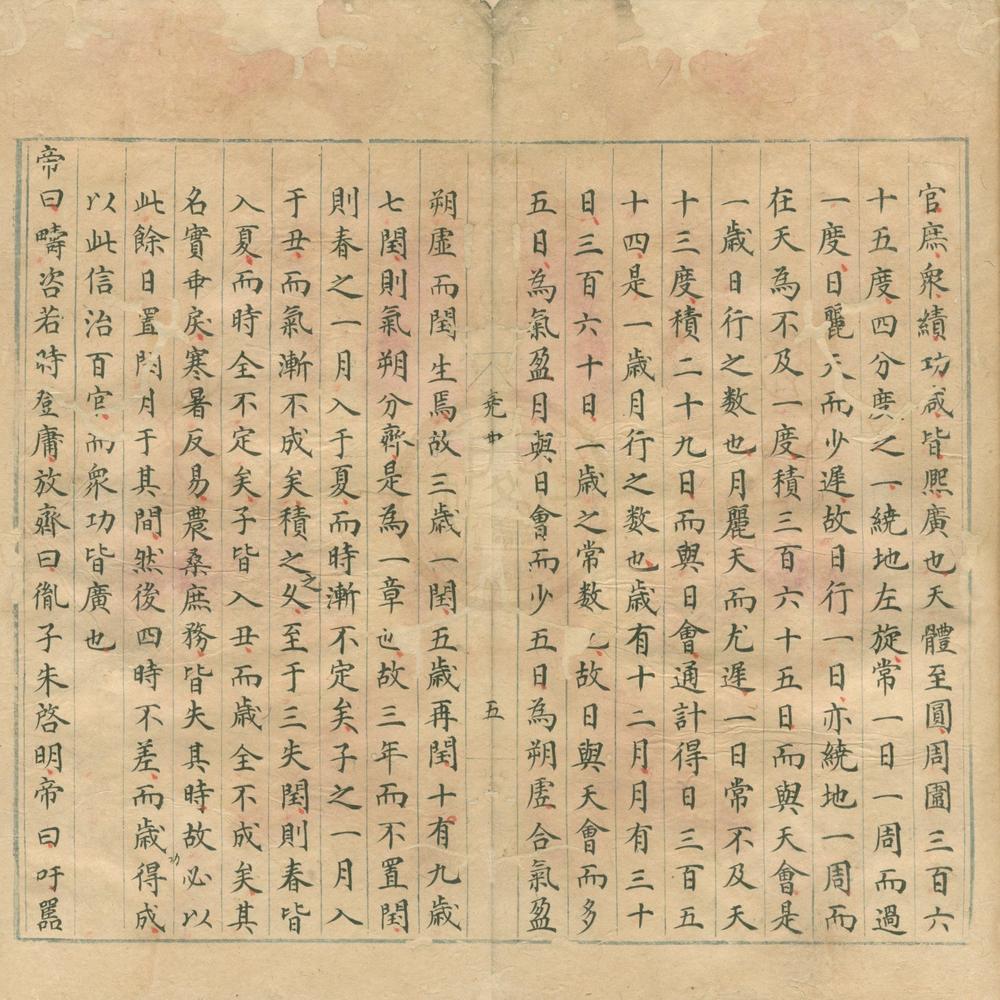 官庶衆績功咸皆熈廣也天體至圓周圍三百六
十五度四分度之一繞地左旋常一日一周而過
一度日麗天而少遲故日行一日亦繞地一周而
在天為不及一度積三百六十五日而與天會是
一歲日行之数也月麗天而尤遲一日常不及天
十三度積二十九日而與日會通計得日三百五
十四是一歲月行之数也歲有十二月月有三十
日三百六十日一歲之常数也故日與天會而多
五日為氣盈月與日會而少五日為朔虛合氣盈
堯
五
朔虛而閏生焉故三歲一閏五歲再閏十有九歲
七閏則氣朔分齊是為一章也故三年而不置閏
則春之一月入于夏而時漸不定矣子之一月入
于丑而氣漸不成矣積之之久至于三失閏則春皆
入夏而時全不定矣子皆入丑而歲全不成矣其
名實乖戾寒暑反易農桑庶務皆失其時故必以
此餘日置閏月于其間然後四時不差而歲功得成
以此信治百官而衆功皆廣也
帝曰疇咨若時登庸放齊曰胤子朱啓明帝曰吁嚚